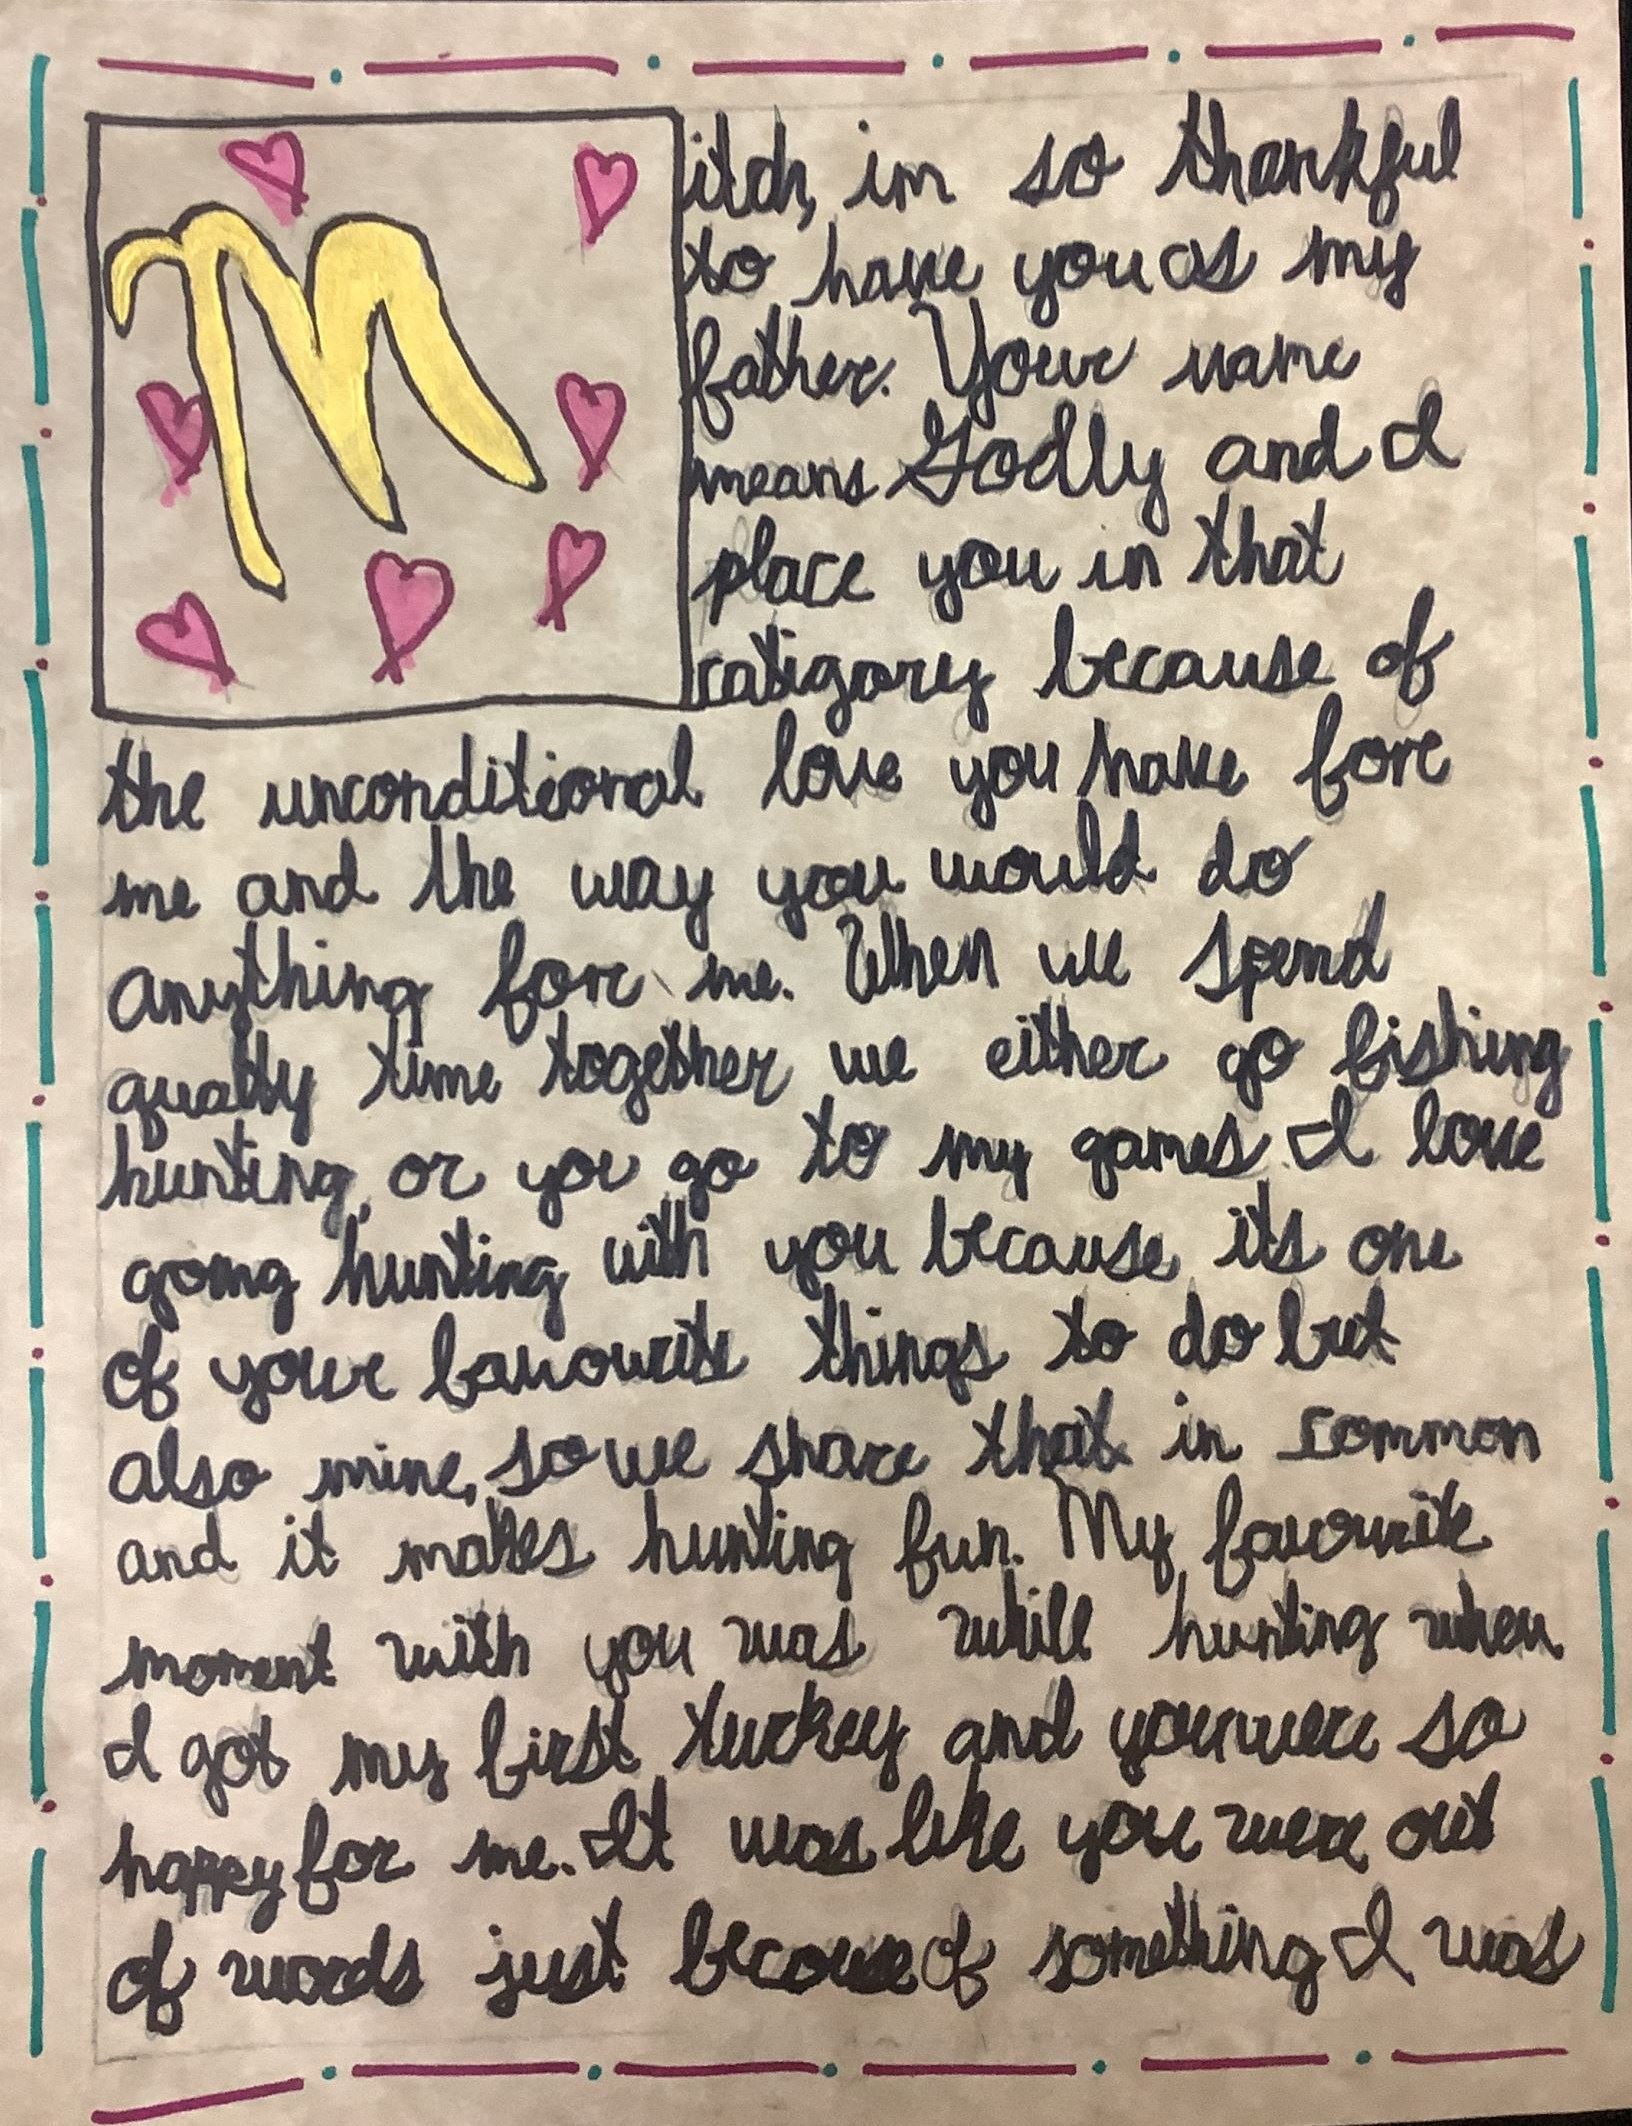 Mitch, im so thankful
to have you as my
father. Your name
means Godly and I
place you in that
catigory because of
the unconditional love you have fore
me and the way you would do
anything fore me. When we spend
quality time together we either go fishing
hunting, or you go to my games. I love
going hunting with you because its one
of your favourite things to do but
also mine, so we share that in common
and it makes hunting fun. My favourite
moment with you was whill hunting when
I got my first turkey and you were so
happy for me. It was like you were out
of words just because of something I was